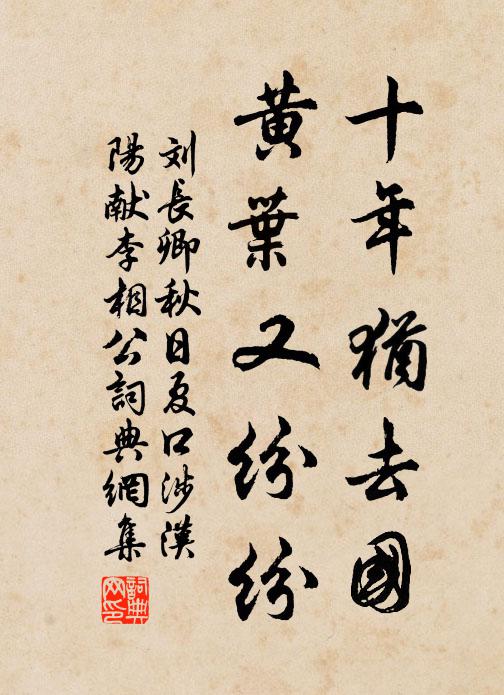 十年猶去國
黃葉又紛紛
刘長卿秋日夏口涉漢
陽献李相公詞典網集
詞典
网印